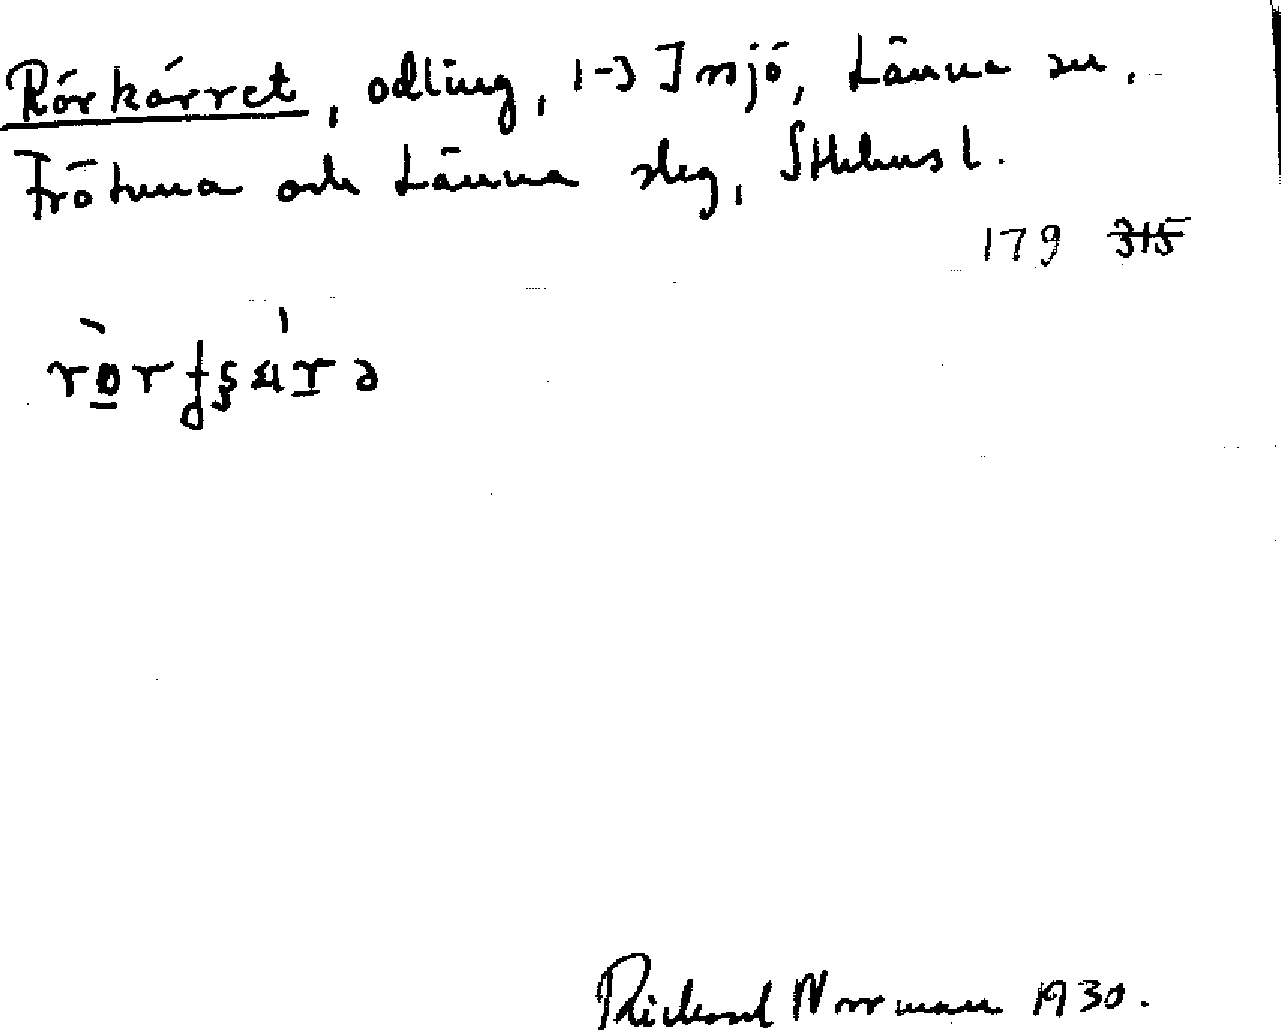 Rörkärret, odling, 1-3 Insjö, Länna sn.
Frötuna och Länna slg, Sthlms l.
179 315
Rickard Norrman 1930.